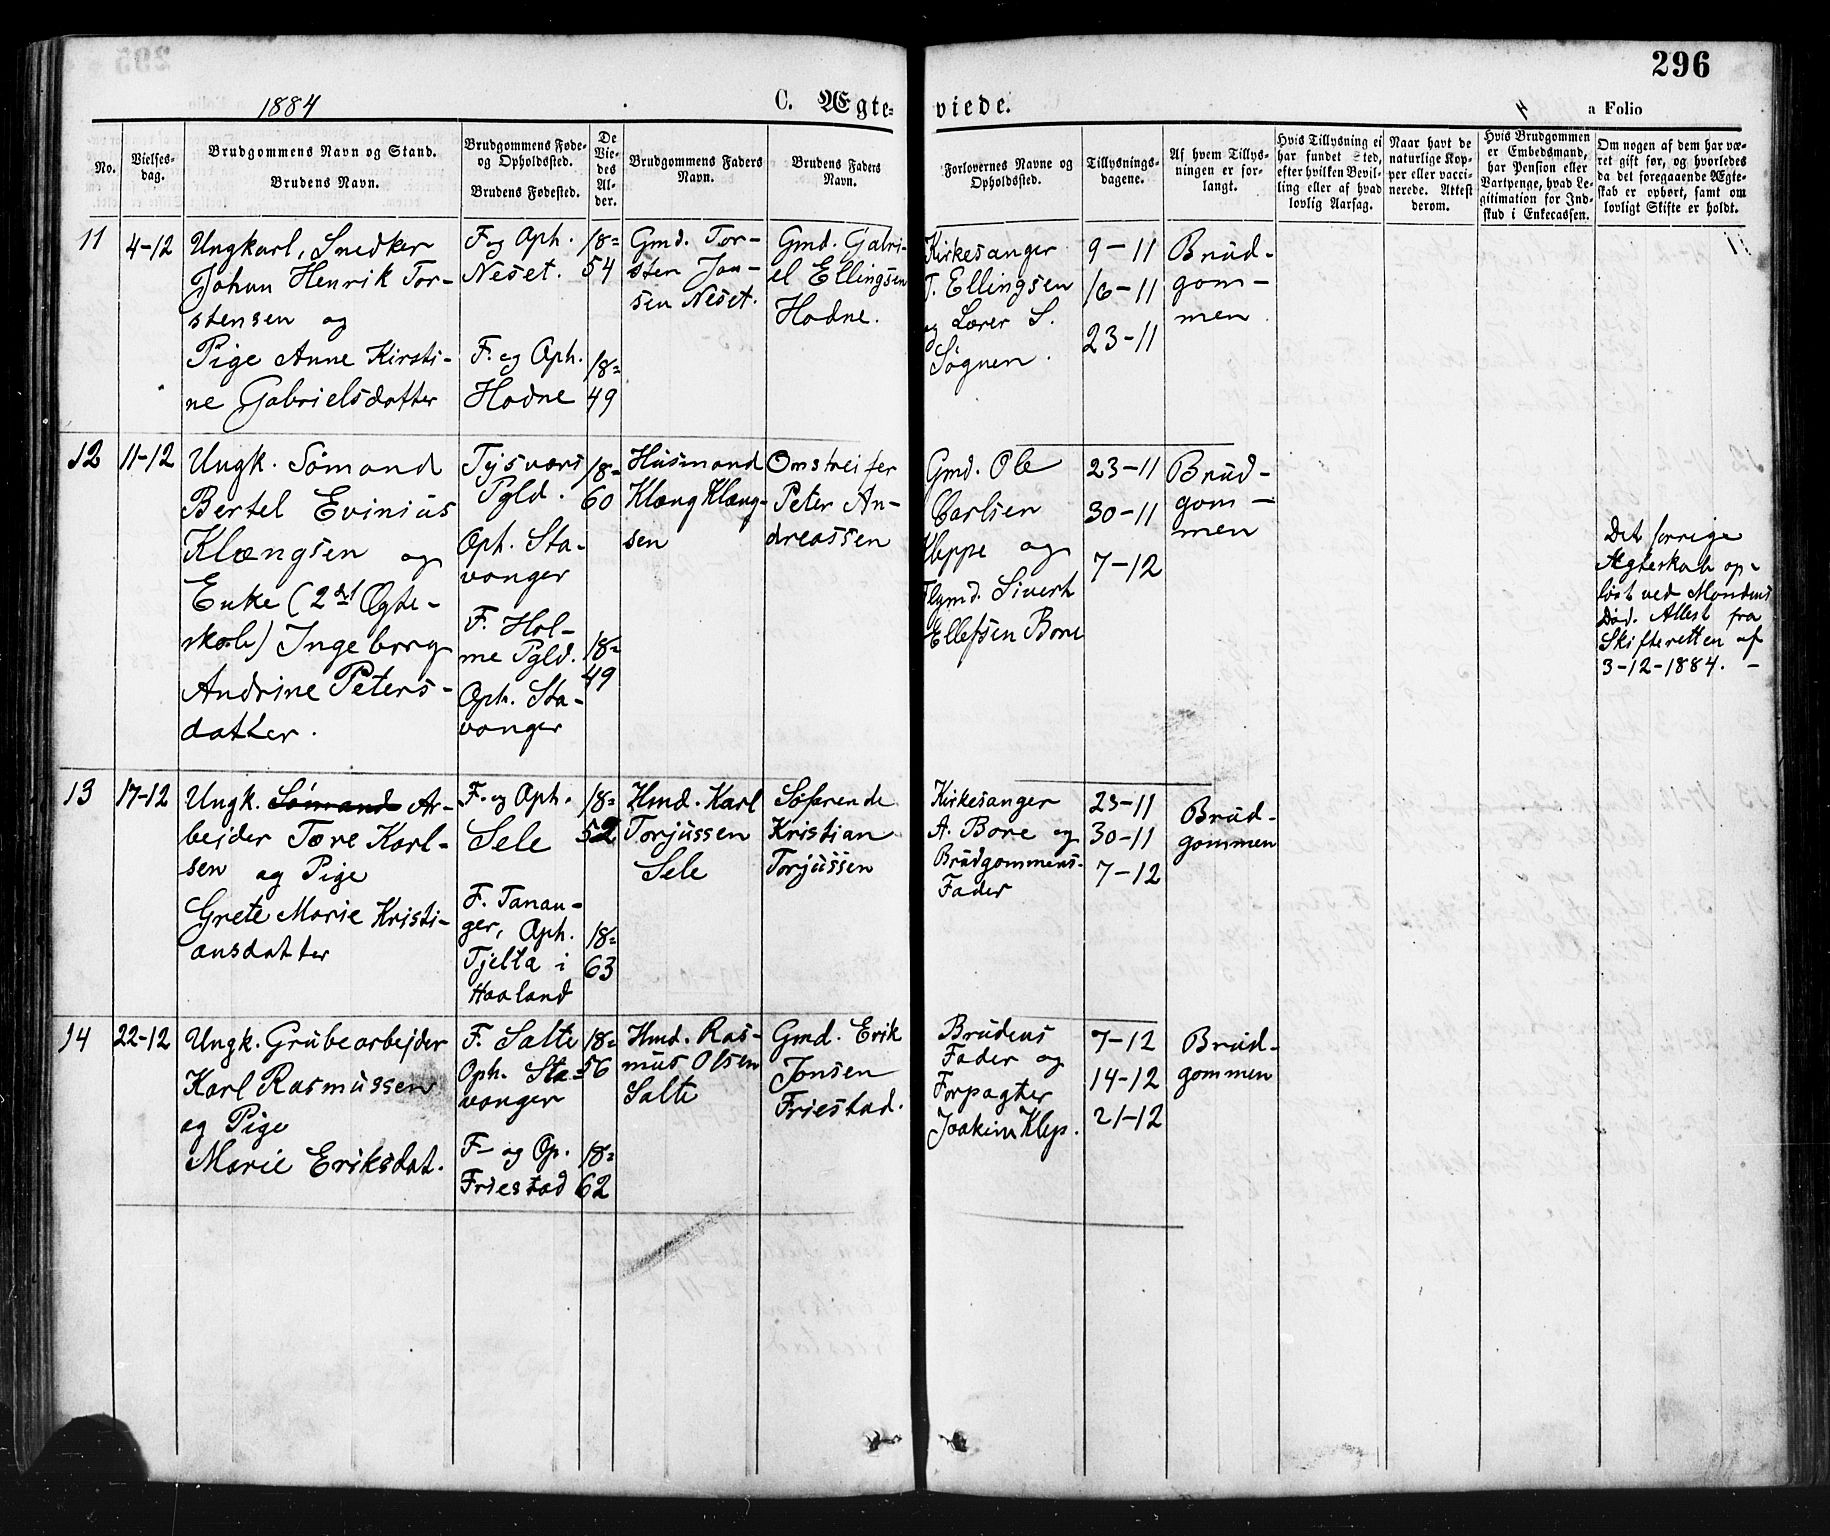 296
1884
C. Ægte-
viede.
a Folio
No.
Vielses-
dag.
Brudgommens Navn og Stand.
Brudens Navn.
Brudgommens Føde-
og Opholdssted.
Brudens Fødested.
De
Vie-
des
Al-
der.
Brudgommens Faders
Navn.
Brudens Faders
Navn.
Forlovernes Navne og
Opholdssted.
Tillysnings-
dagene.
Af hvem Tillys-
ningen er for-
langt.
Hvis Tillysning ei
har fundet Sted,
efter hvilken Bevil-
ling eller af hvad
lovlig Aarsag.
Naar havt de
naturlige Kop-
per eller vacci-
nerede. Attest
derom.
Hvis Brudgommen
er Embedsmand,
har Pension eller
Vartpenge, hvad Le-
gitimation for Ind-
skud i Enkecassen.
Om nogen af dem har væ-
ret gift før, og hvorledes
da det foregaaende Ægte-
skab er ophørt, samt om
lovligt Skifte er holdt.
11
4-12
Ungkarl, Snedker
Johan Henrik Tor-
stensen og
Pige Anne Kirsti-
ne Gabrielsdatter
F og Oph.
Neset.
F. og Oph.
Hodne
18=
54
18=
49
Gmd. Tor-
sten Jon-
sen Neset.
Gmd. Gabri-
el Ellingsen
Hodne.
Kirkesanger
T. Ellingsen
og Lærer S.
Søgnen.
9-11
16-11
23-11
Brud-
gom-
men
12
11-12
Ungk. Sømand
Bertel Evinius
Klængsen og
Enke (2det Ægte-
skab) Ingeborg
Andrine Peters-
datter.
Tysvær
Pgld.
Oph. Sta-
vanger
F. Hol-
me Pgld.
Oph. Sta-
vanger
18=
60
18=
49
Husmand
Klæng Klæng-
sen
Omstreifer
Peter An-
dreassen
Gmd. Ole
Carlsen
Kleppe og
Sivert
Ellefsen Bore
23-11
30-11
7-12
Brud-
gom-
men
Det forrige
Ægteskab op-
løst ved Mandens
Død. Attest fra
Skifteretten af
3-12-1884. -
13
17-12
Ungk. Sømand Ar-
bejder Tore Karl-
sen og Pige
Grete Marie Kristi-
ansdatter
F. og Oph.
Sele
F. Tanan-
ger, Oph.
Tjelta i
Haaland
18=
52
18=
63
Hmd. Karl
Torjussen
Sele
Søfarende
Kristian
Torjussen
Kirkesanger
A. Bore og
Brudgommens
Fader
23-11
30-11
7-12
Brud-
gommen
14
22-12
Ungk. Grubearbejder
Karl Rasmussen
og Pige
Marie Eriksdat.
F. Salte
Oph. Sta-
vanger
F- og Op.
Friestad
18=
56
18=
62
Hmd. Ras-
mus Olsen
Salte
Gmd. Erik
Jonsen
Friestad.
Brudens
Fader og
Forpagter
Joakim Klep.
7-12
14-12
21-12
Brud-
gommen